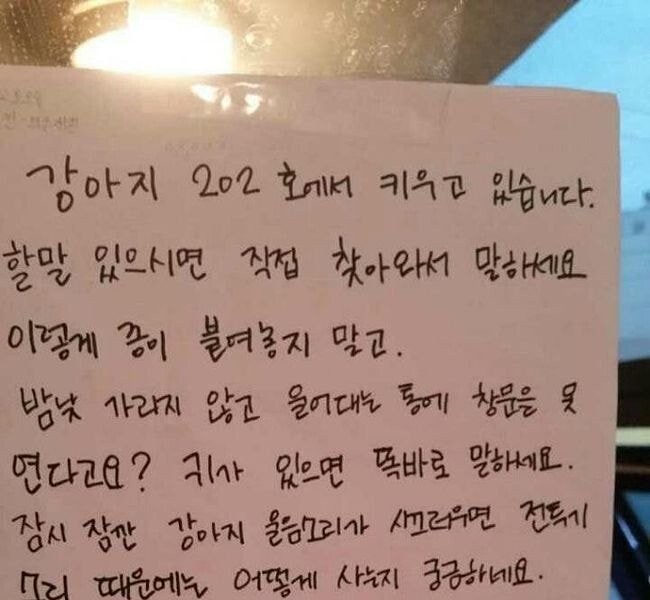 강아지 202 호에서 키우고 있습니다.
할말 있으시면 직접 찾아와서 말하세요
이렇게 종이 붙여놓지 말고.
밤낮 가리지 않고 울어대는 통에 창문을 못
연다고요? 귀가 있으면 똑바로 말하세요.
잠시 잠깐 강아지 울음소리가 시끄러우면 전투기
소리 때문에는 어떻게 사는지 궁금하네요.